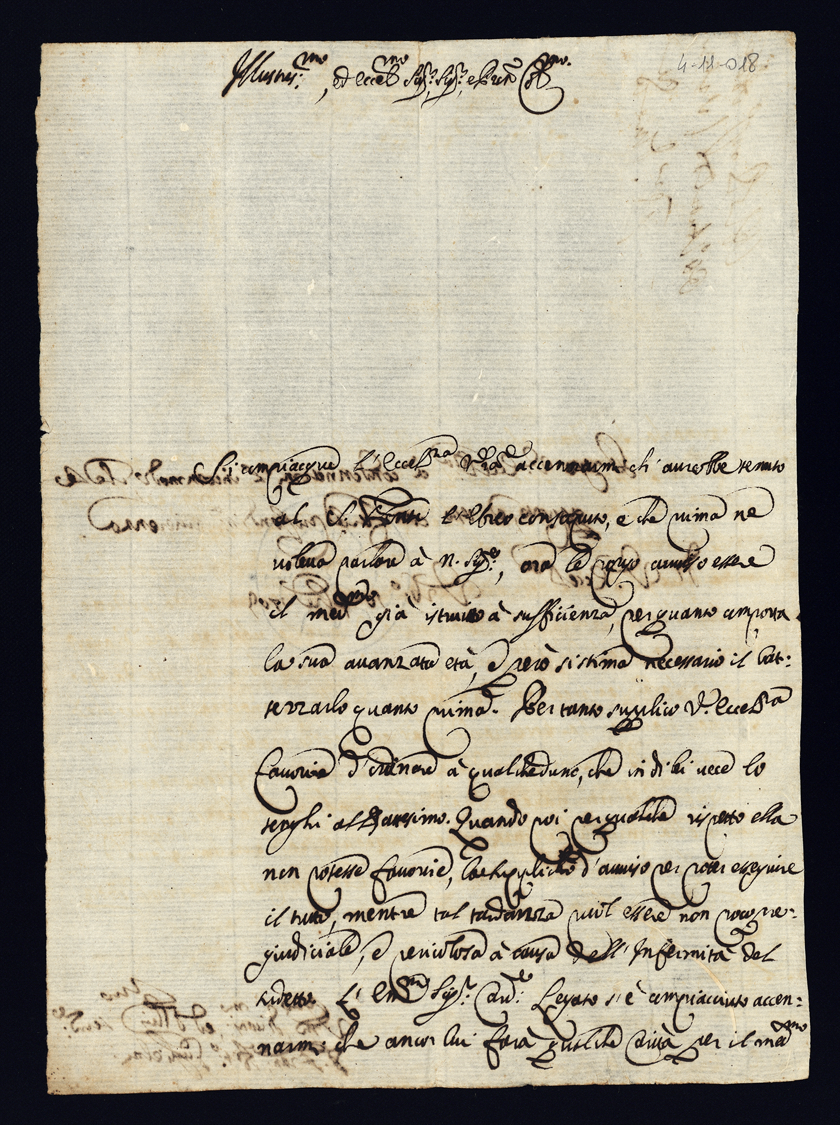 4-11-018
Illustris.mo, ed Eccell.mo Sig.r, Sig.r, e Pron. Col.mo
Si compiacque l'Eccell.za V.ra accennarmi ch'aurebbe tenuto
al Fonte l'Ebreo consaputo, e che prima ne
voleva parlare à N. Sig.re, ora le porgo auuiso essere
il med.mo già istruito à sufficienza, per quanto comporta
la sua auanzata età, e però si stima necessario il bat:
tezzarlo quanto prima. Per tanto supplico V. Eccell.za
fauorire d'ordinare à qualcheduno, che in di lei vece lo
tenghi al Battesimo. Quando poi per qualche rispetto ella
non potesse fauorire, la supplico d'auuiso per poter eseguire
il tutto, mentre tal tardanza puol essere non poco pre:
giudiciale, e pericolosa à causa dell'Infermità del
sudetto. L'Em.mo Sig.r Card.e Legato s'è compiacciuto accen:
narmi che ancor lui farà qualche carità per il med.mo